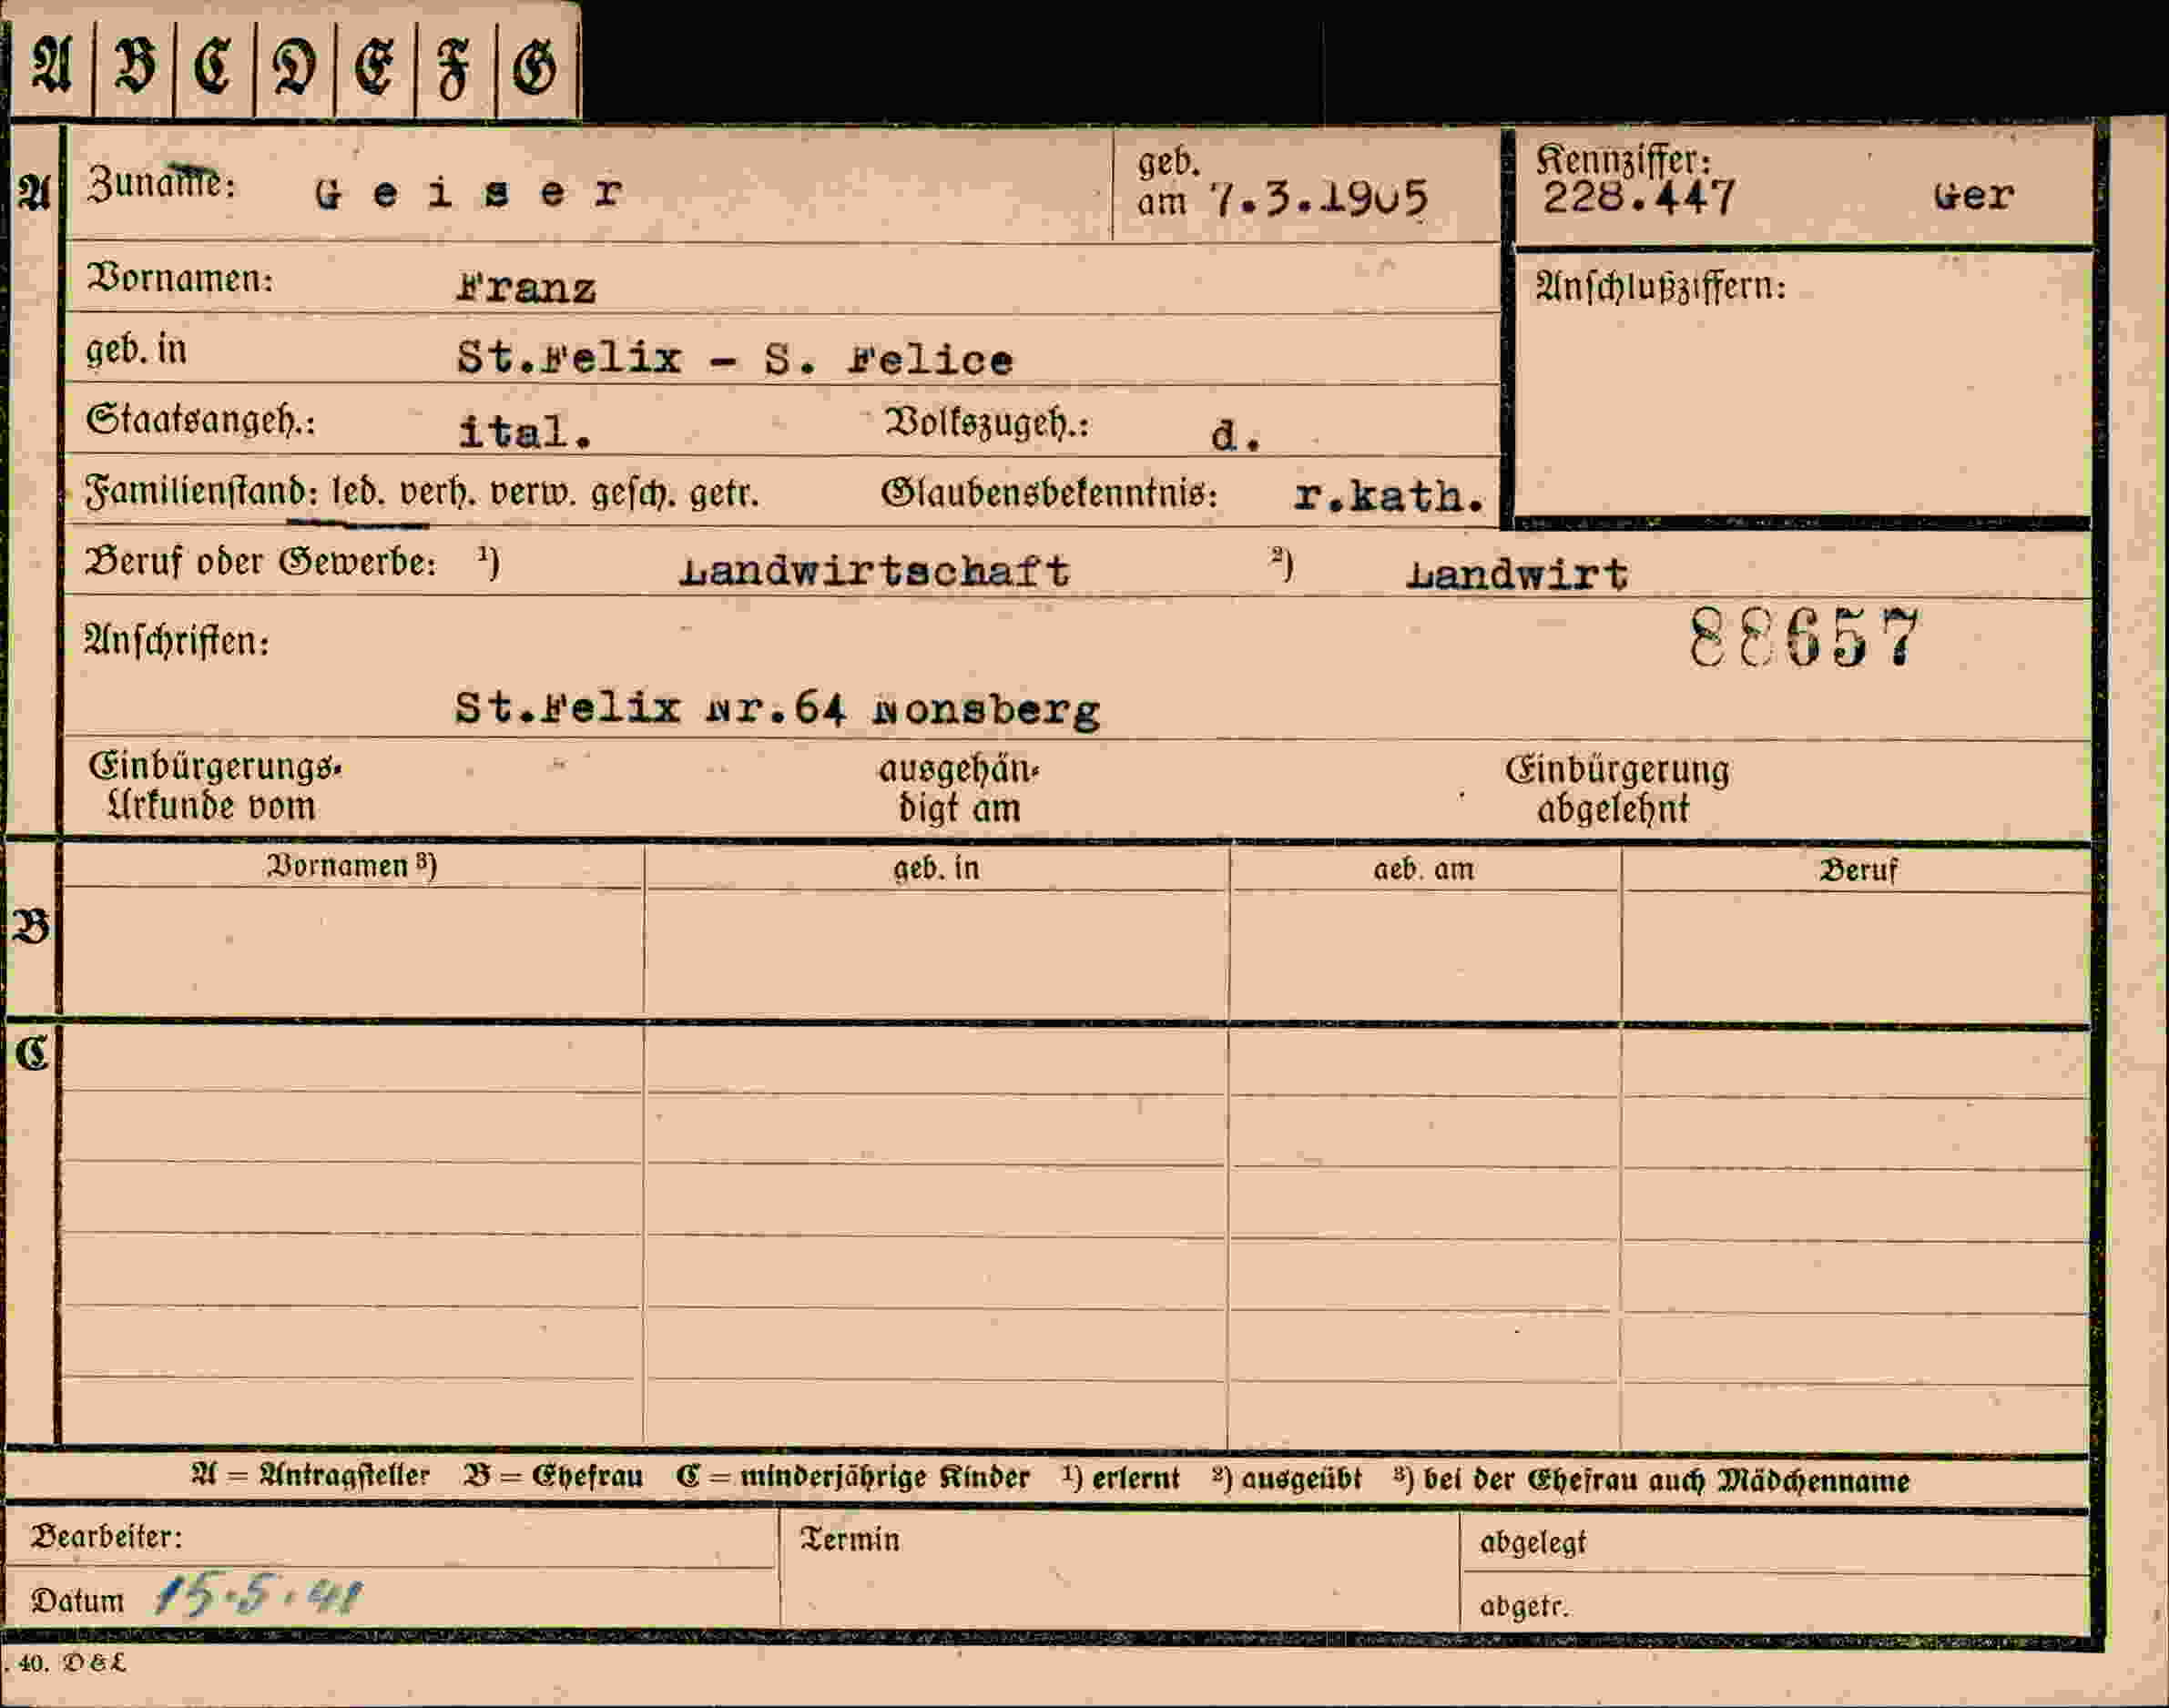 A B C D E F G
A Zuname: Geiser geb. am 7.3.1905 Kennziffer: 228.447 Ger
Vornamen: Franz Anschlußziffern:
geb. in St.Felix - S. Felice
Staatsangeh.: ital. Volkszugeh.: d.
Familienstand: led. verh. verw. gesch. getr. Glaubensbekenntnis: r.kath.
Beruf oder Gewerbe: ¹) Landwirtschaft ²) Landwirt
Anschriften: 88657
St.Felix Nr.64 Nonsberg
Einbürgerungs- ausgehän- Einbürgerung
Urkunde vom digt am abgelehnt
Vornamen ³) geb. in geb. am Beruf
B
C
A = Antragsteller B = Ehefrau C = minderjährige Kinder ¹) erlernt ²) ausgeübt ³) bei der Ehefrau auch Mädchenname
Bearbeiter: Termin abgelegt
Datum 15.5.41 abgetr.
. 40. D & L